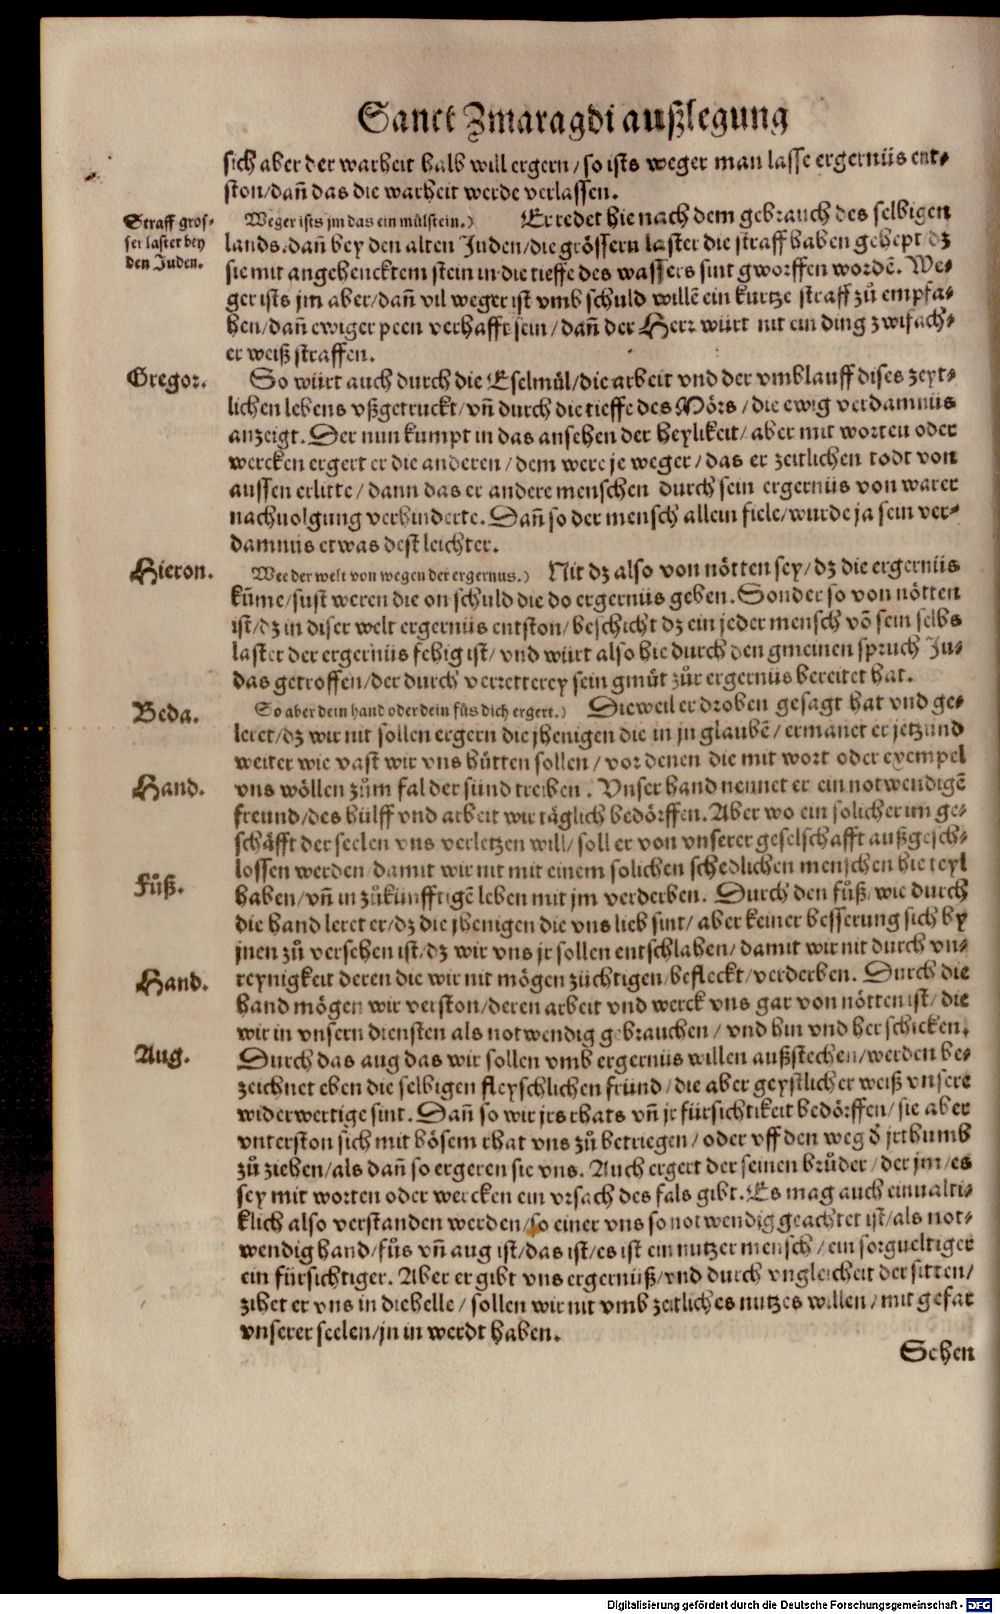 Sanct Zmaragdi außlegung
sich aber der warheit halb will ergern / so ists weger man lasse ergernüs ent-
ston / dañ das die warheit werde verlassen.
Straff gros-
ser laster bey
den Juden.
Weger ists jm das ein mülstein.) Er redet hie nach dem gebrauch des selbigen
lands, dañ bey den alten Juden / die grössern laster die straff haben gehept / dz
sie mit angehencktem stein in die tieffe des wassers sint gworffen wordē. We-
ger ists jm aber / dañ vil weger ist vmb schuld willē ein kurtze straff zů empfa-
hen / dañ ewiger peen verhafft sein / dañ der Herr würt nit ein ding zwifach-
er weiß straffen.
Gregor.
So würt auch durch die Eselmül / die arbeit vnd der vmblauff dises zeyt-
lichen lebens vßgetruckt / vñ durch die tieffe des Mörs / die ewig verdamnüs
anzeigt. Der nun kumpt in das ansehen der heylikeit / aber mit worten oder
wercken ergert er die anderen / dem were je weger / das er zeitlichen todt von
aussen erlitte / dann das er andere menschen durch sein ergernüs von warer
nachuolgung verhinderte. Dañ so der mensch allein fiele / wurde ja sein ver-
damnüs etwas dest leichter.
Hieron.
Wee der welt von wegen der ergernus.) Nit dz also von nötten sey / dz die ergernüs
kūme / sust weren die on schuld die do ergernüs geben. Sonder so von nötten
ist / dz in diser welt ergernüs entston / beschicht dz ein jeder mensch vō sein selbs
laster der ergernüs fehig ist / vnd würt also hie durch den gmeinen spruch Ju-
das getroffen / der durch verretterey sein gmůt zůr ergernüs bereitet hat.
Beda.
So aber dein hand oder dein fůs dich ergert.) Dieweil er droben gesagt hat vnd ge-
leret / dz wir nit sollen ergern die jhenigen die in jn glaubē / ermanet er jetzund
weiter wie vast wir vns hütten sollen / vor denen die mit wort oder exempel
Hand.
vns wöllen zům fal der sünd treiben. Vnser hand nennet er ein notwendigē
freund / des hülff vnd arbeit wir täglich bedörffen. Aber wo ein solicher im ge-
schäfft der seelen vns verletzen will / soll er von vnserer geselschafft außgesch-
lossen werden / damit wir nit mit einem solichen schedlichen menschen hie teyl
Fůß.
haben / vñ in zůkünfftigē leben mit jm verderben. Durch den fůß / wie durch
die hand leret er / dz die jhenigen die vns lieb sint / aber keiner besserung sich by
jnen zů versehen ist / dz wir vns jr sollen entschlahen / damit wir nit durch vn-
Hand.
reynigkeit deren die wir nit mögen züchtigen / befleckt / verderben. Durch die
hand mögen wir verston / deren arbeit vnd werck vns gar von nötten ist / die
wir in vnsern diensten als notwendig gebrauchen / vnd hin vnd her schicken.
Aug.
Durch das aug das wir sollen vmb ergernüs willen außstechen / werden be-
zeichnet eben die selbigen fleyschlichen fründ / die aber geystlicher weiß vnsere
widerwertige sint. Dañ so wir jrs rhats vñ jr fürsichtikeit bedörffen / sie aber
vnterston sich mit bösem rhat vns zů betriegen / oder vff den weg d̄ jrthumb
zů ziehen / als dañ so ergeren sie vns. Auch ergert der seinen brůder / der jm / es
sey mit worten oder wercken ein vrsach des fals gibt. Es mag auch einualti-
klich also verstanden werden / so einer vns so notwendig geachtet ist / als not-
wendig hand / fůs vñ aug ist / das ist / es ist ein nutzer mensch / ein sorgueltiger
ein fürsichtiger. Aber er gibt vns ergernüß / vnd durch vngleicheit der sitten /
zihet er vns in die helle / sollen wir nit vmb zeitliches nutzes willen / mit gefar
vnserer seelen / jn in werdt haben.
Sehen
Digitalisierung gefördert durch die Deutsche Forschungsgemeinschaft - DFG